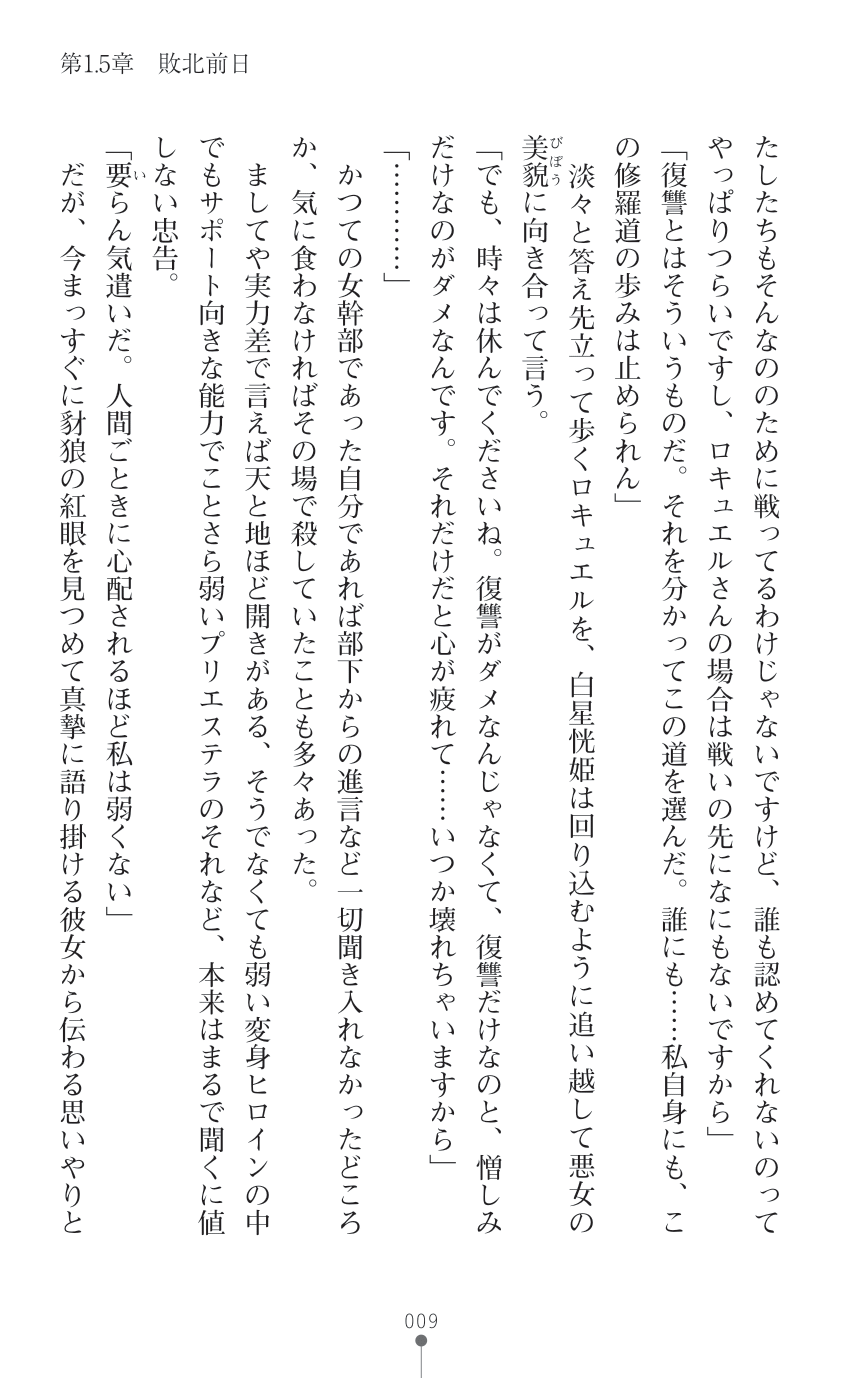 第1.5章　敗北前日
たしたちもそんなののために戦ってるわけじゃないですけど、誰も認めてくれないのって
やっぱりつらいですし、ロキュエルさんの場合は戦いの先になにもないですから」
「復讐とはそういうものだ。それを分かってこの道を選んだ。誰にも……私自身にも、こ
の修羅道の歩みは止められん」
　淡々と答え先立って歩くロキュエルを、白星恍姫は回り込むように追い越して悪女の
美貌に向き合って言う。
「でも、時々は休んでくださいね。復讐がダメなんじゃなくて、復讐だけなのと、憎しみ
だけなのがダメなんです。それだけだと心が疲れて……いつか壊れちゃいますから」
「…………」
　かつての女幹部であった自分であれば部下からの進言など一切聞き入れなかったどころ
か、気に食わなければその場で殺していたことも多々あった。
　ましてや実力差で言えば天と地ほど開きがある、そうでなくても弱い変身ヒロインの中
でもサポート向きな能力でことさら弱いプリエステラのそれなど、本来はまるで聞くに値
しない忠告。
「要らん気遣いだ。人間ごときに心配されるほど私は弱くない」
　だが、今まっすぐに豺狼の紅眼を見つめて真摯に語り掛ける彼女から伝わる思いやりと
009